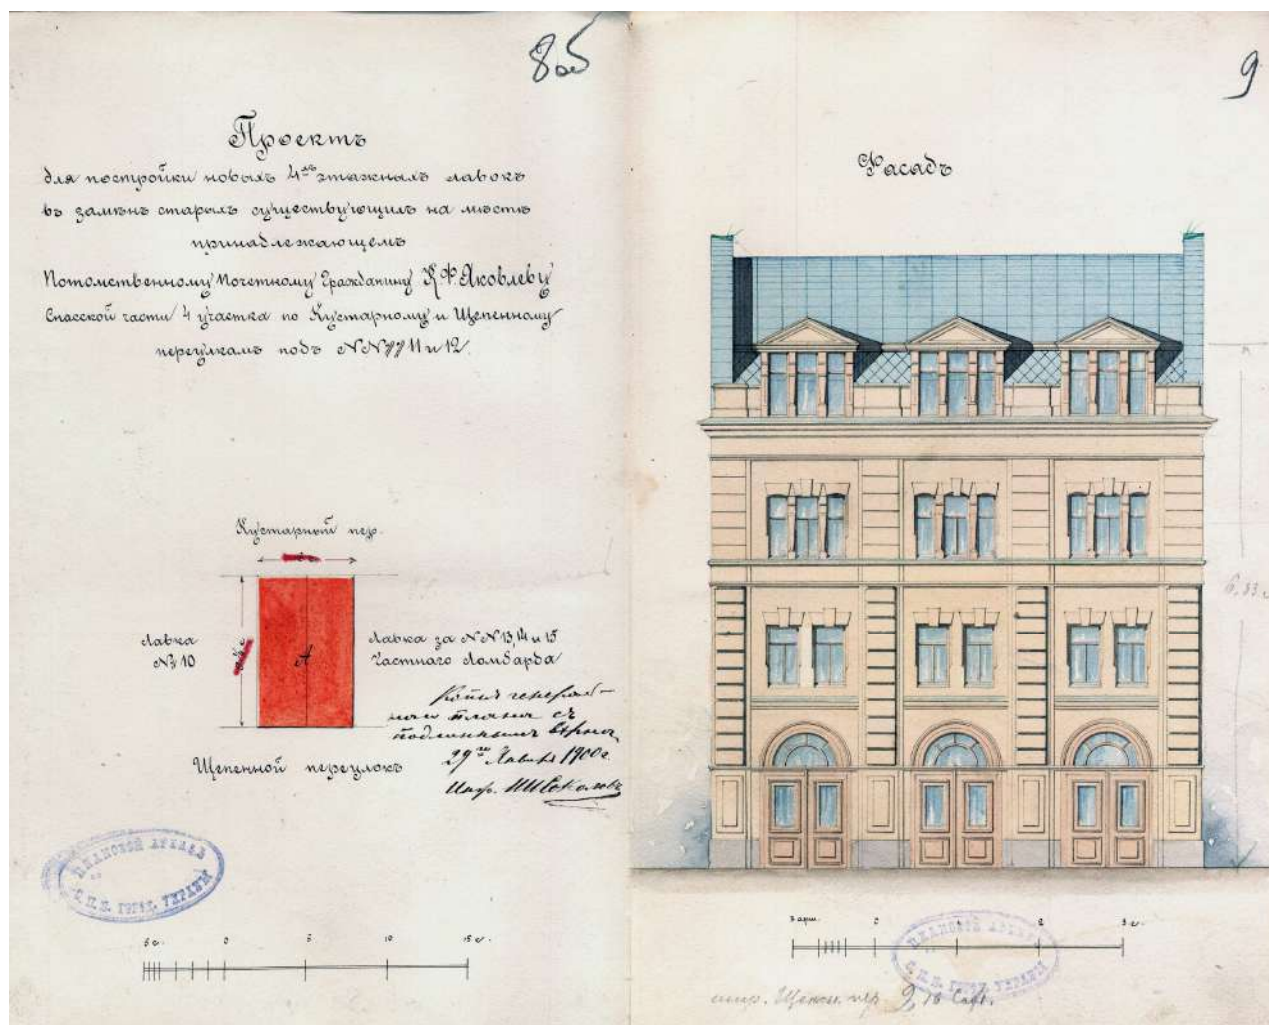 8об
Проектъ
для постройки новыхъ 4хъ этажныхъ лавокъ
въ замѣнъ старыхъ существующихъ на мѣстѣ
принадлежащемъ
Потомственному Почетному Гражданину К. Ф. Яковлеву
Спасской части 4 участка по Кустарному и Щепенному
переулкамъ подъ №№ 11 и 12.
Кустарный пер.
Лавка
№ 10
А
Лавка за №№ 13, 14 и 15
Частнаго Ломбарда
Копія генераль-
наго плана съ
подлиннымъ вѣрна
29го Января 1900 г.
Инж. Соколовъ
Щепенной переулокъ
ПЛАНОВОЙ АРХИВЪ
С.П.Б. ГОРОД. УПРАВЫ
5 с. 0 5 10 15 с.
9
Фасадъ
3 арш. 0 1 2 3 с.
ПЛАНОВОЙ АРХИВЪ
С.П.Б. ГОРОД. УПРАВЫ
пер. 9,10 Саж.